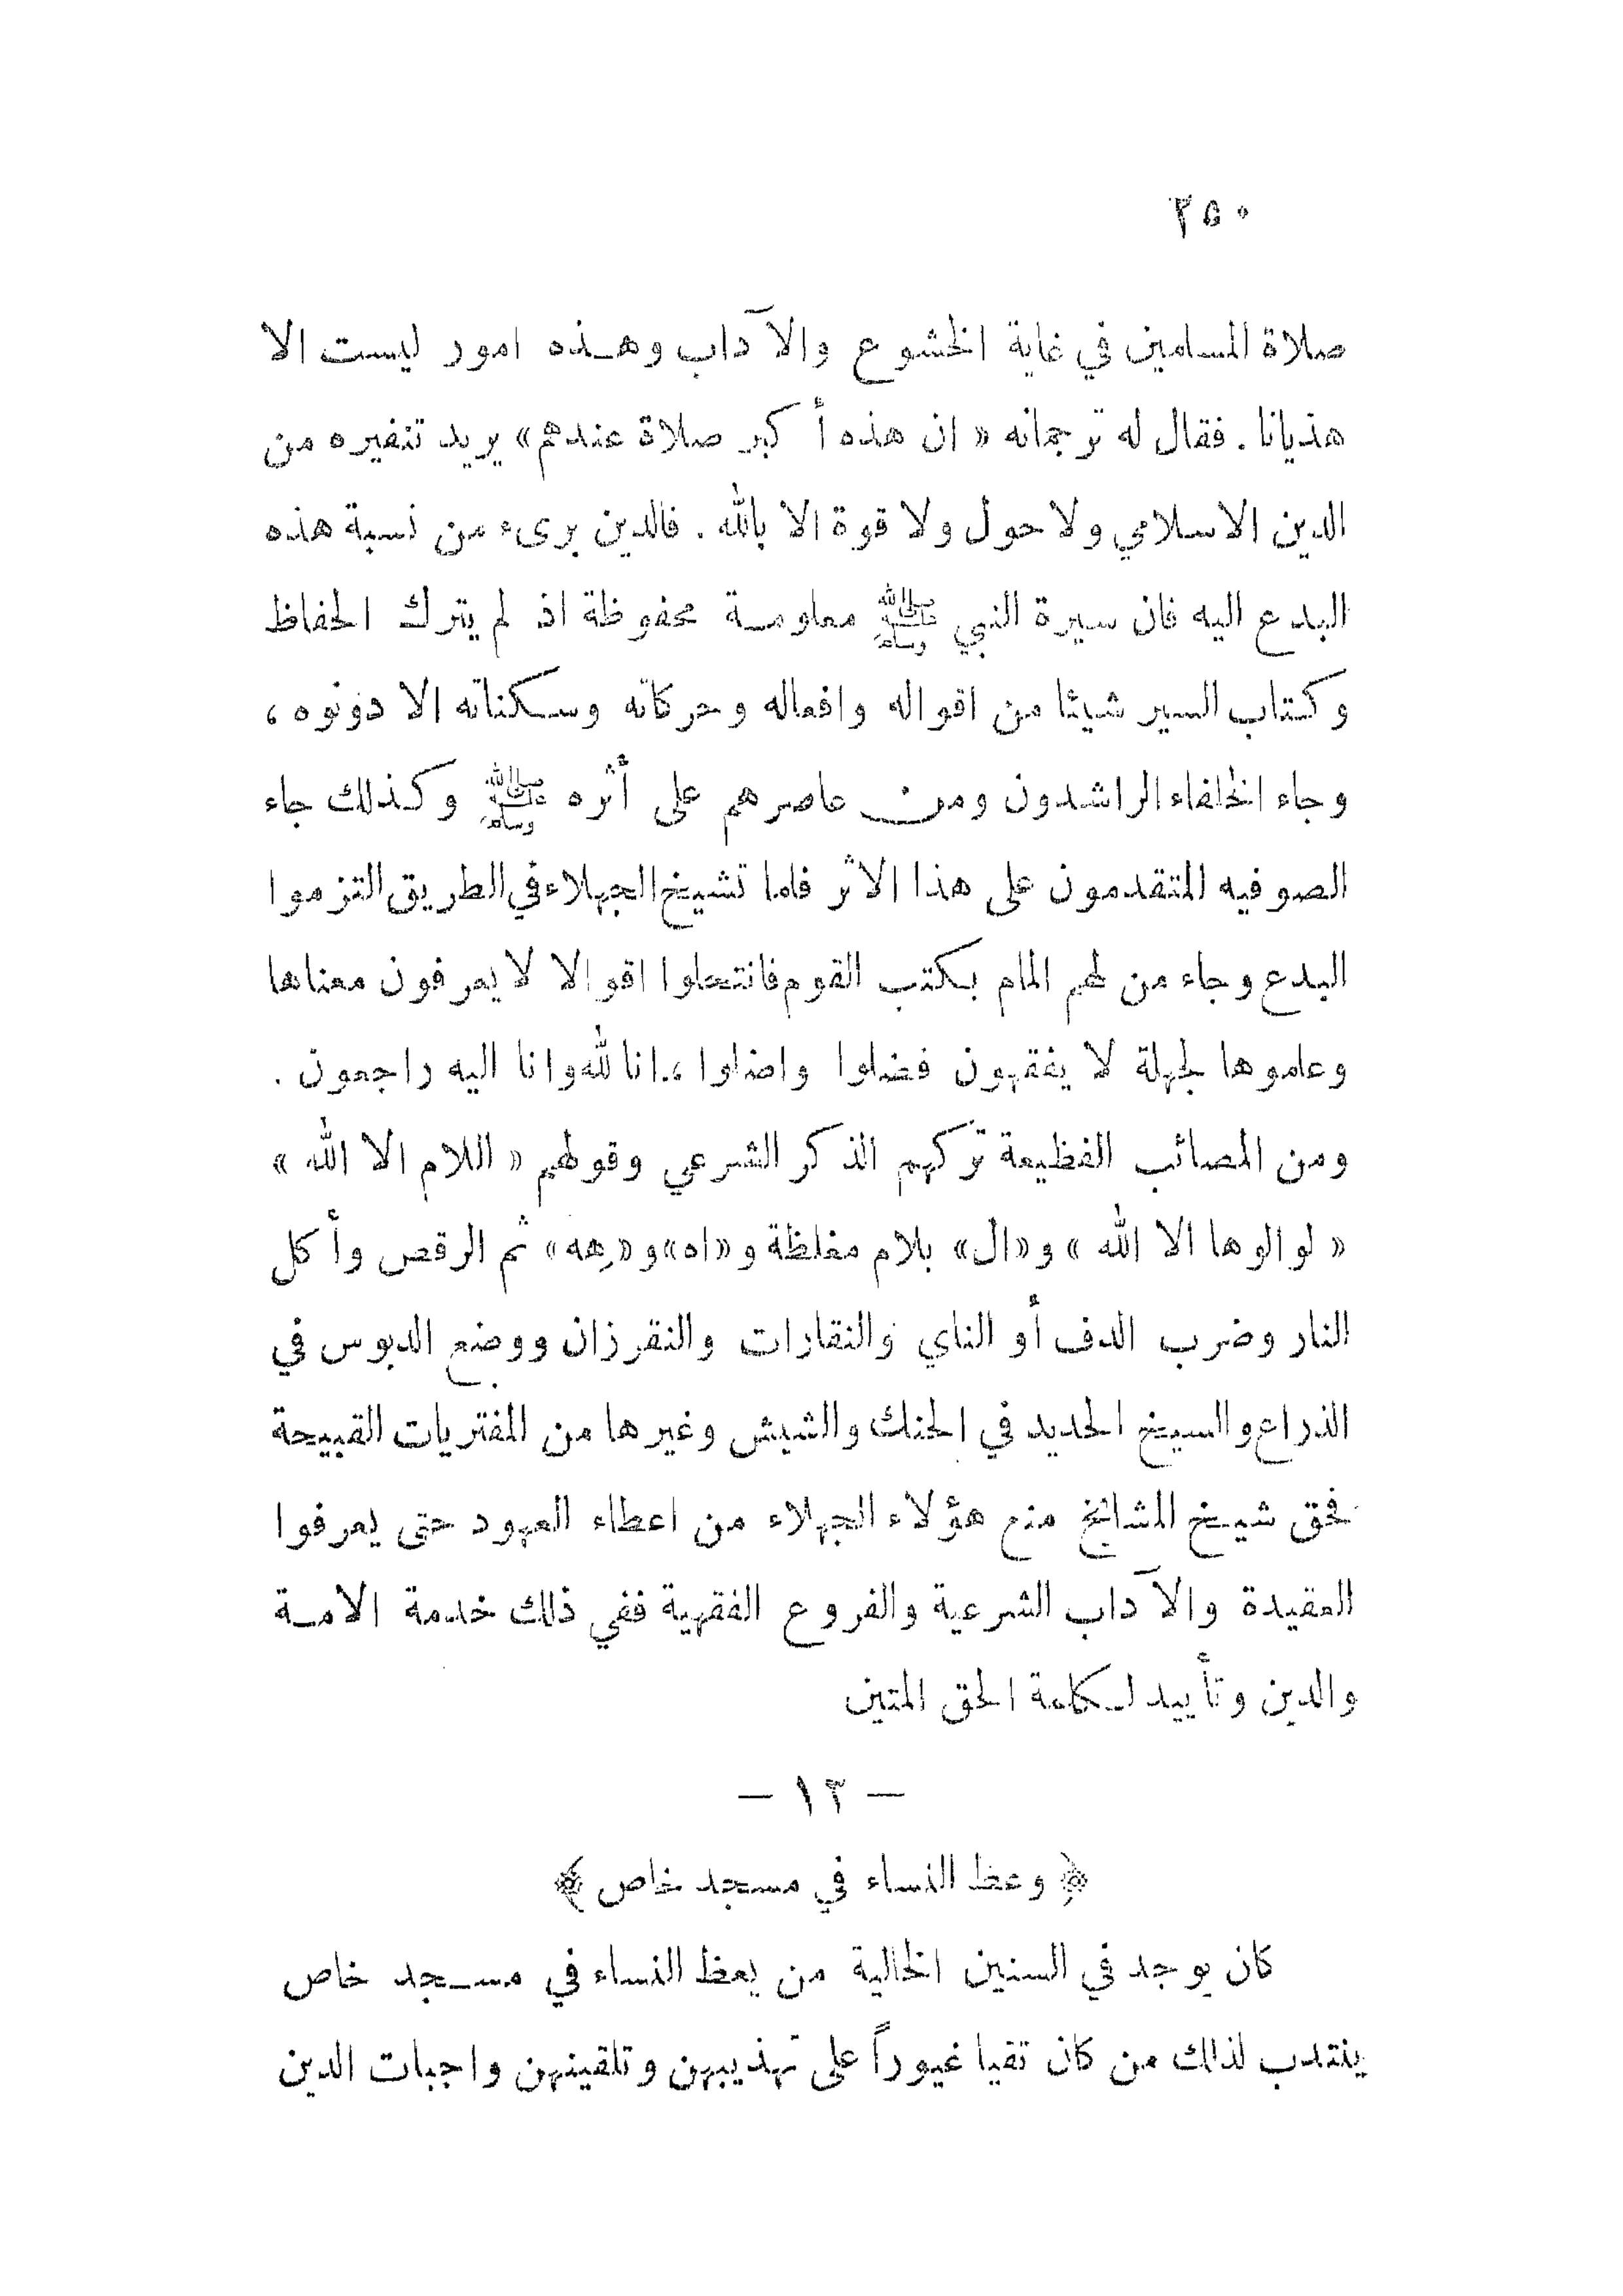 ٢٥٠
صلاة المسلمين في غاية الخشوع والآداب وهذه امور ليست الا
هذيانا . فقال له ترجمانه « ان هذه أكبر صلاة عندهم » يريد تنفيره من
الدين الاسلامي ولا حول ولا قوة الا بالله . فالدين برىء من نسبة هذه
البدع اليه فان سيرة النبي ﷺ معلومة محفوظة اذ لم يترك الحفاظ
وكتاب السير شيئا من اقواله وافعاله وحركاته وسكناته الا دونوه ،
وجاء الخلفاء الراشدون ومن عاصرهم على أثره ﷺ وكذلك جاء
الصوفيه المتقدمون على هذا الاثر فلما تشيخ الجهلاء في الطريق التزموا
البدع وجاء من لهم المام بكتب القوم فانتحلوا اقوالا لا يعرفون معناها
وعلموها لجهلة لا يفقهون فضلوا واضلوا ، انا لله وانا اليه راجعون .
ومن المصائب الفظيعة تركهم الذكر الشرعي وقولهم « اللام الا الله »
« لوالوها الا الله » و « ال » بلام مغلظة و « اه » و « هِه » ثم الرقص وأكل
النار وضرب الدف أو الناي والنقارات والنقرزان ووضع الدبوس في
الذراع والسيخ الحديد في الحنك والشيش وغيرها من المفتريات القبيحة
فحق شيخ المشائخ منع هؤلاء الجهلاء من اعطاء العهود حتى يعرفوا
العقيدة والآداب الشرعية والفروع الفقهية ففي ذلك خدمة الامة
والدين وتأييد لكلمة الحق المتين
— ١٣ —
﴿ وعظ النساء في مسجد خاص ﴾
كان يوجد في السنين الخالية من يعظ النساء في مسجد خاص
ينتدب لذلك من كان تقيا غيوراً على تهذيبهن وتلقينهن واجبات الدين